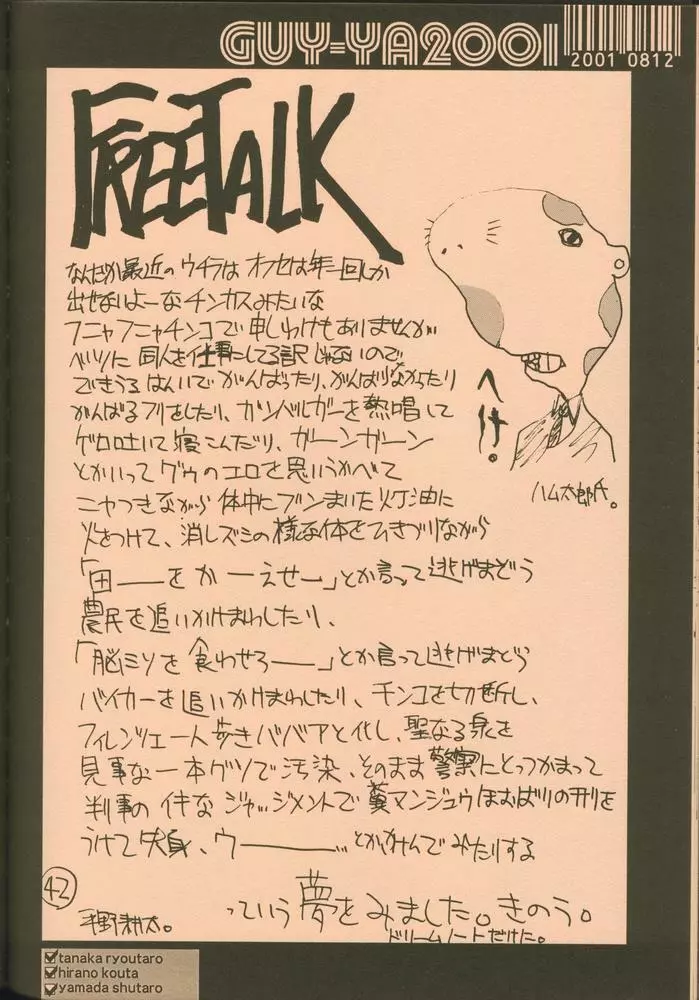 GUY-YA2001
2001 0812
FREETALK
なんだか最近のウチラはオフセは年一回しか
出せないよーなチンカスみたいな
フニャフニャチンコで申しわけもありませんが
ベツに同人を仕事にしてる訳じゃないので
できうるはんいでがんばったり、がんばりなかったり
がんばるフリをしたり、ガンバルガーを熱唱して
ゲロ吐いて寝こんだり、ガーンガーン
とかいってグゥのエロを思いうかべて
ニヤつきながら体中にブンまいた灯油に
火をつけて、消しズミの様な体をひきづりながら
「田――をかーえせー」とか言って逃げまどう
農民を追いかけまわしたり、
「脳ミソを食わせろ――」とか言って逃げまどう
バイカーを追いかけまわしたり、チンコを切断し、
フィレンツェ一人歩きババアと化し、聖なる泉を
見事な一本グソで汚染、そのまま警察にとっつかまって
判事のイキなジャッジメントで糞マンジュウほおばりの刑を
うけて失身、ウ――――...とかかけんでみたりする
っていう夢をみました。きのう。
ドリームノートだけに。
へけ!
ハム太郎氏。
42
平野耕太。
tanaka ryoutaro
hirano kouta
yamada shutaro